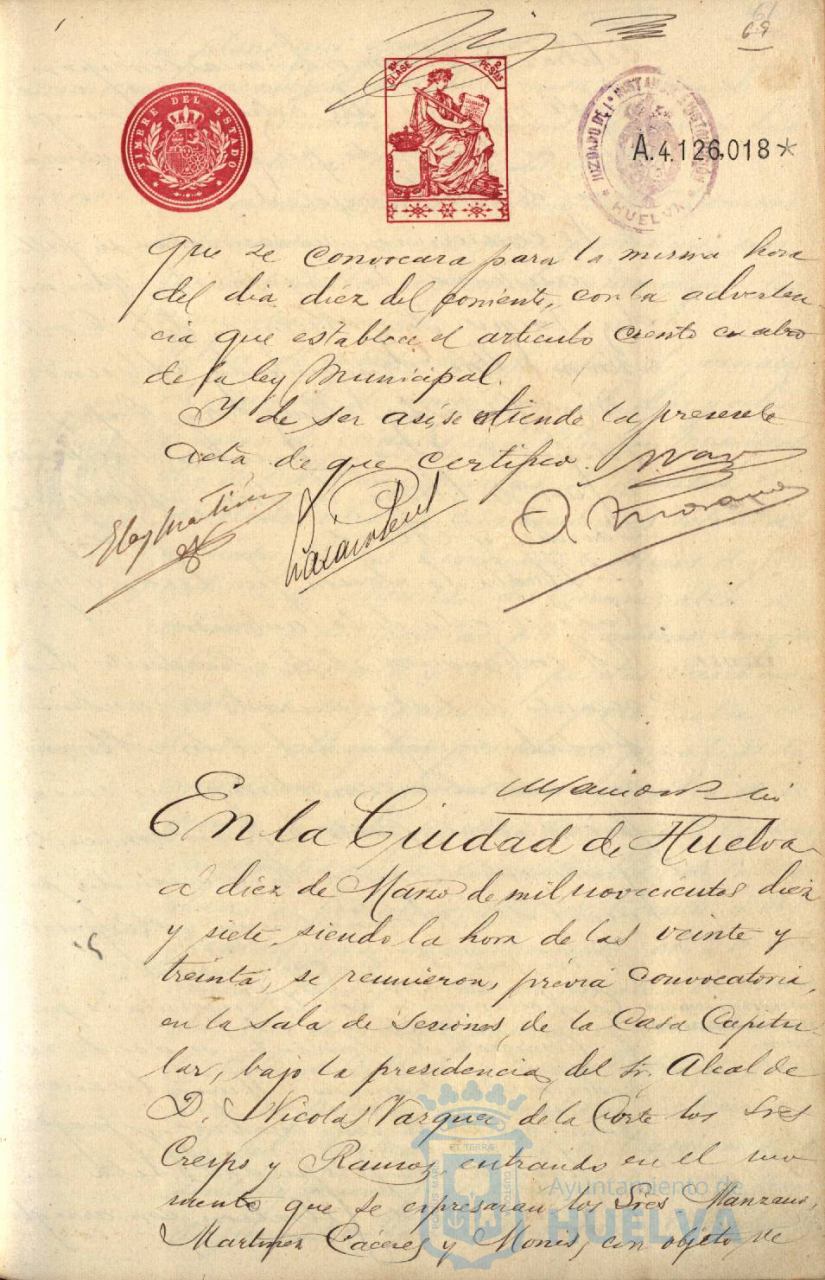 69
TIMBRE DEL ESTADO
CLASE
PESTAS
JUZGADO DE 1ª INSTANCIA
HUELVA
A.4.126,018*
que se convocara para la misma hora
del dia diez del corriente, con la adverten-
cia que establece el articulo ciento cuatro
de la ley Municipal.
Y de ser así, se etiende la presente
Acta de que certifico.
En la Ciudad de Huelva
á diez de Marzo de mil novecientos diez
y siete, siendo la hora de las veinte y
treinta, se reunieron, prévia convocatoria,
en la Sala de Sesiones, de la Casa Capitu-
lar, bajo la presidencia, del Sr. Alcalde
D. Nicolas Vazquez de la Corte los Sres
Crespo y Ramos, entrando en el mo-
mento que se expresaran los Sres Manzano,
Martinez Cáceres y Mones, con objeto de
Ayuntamiento de
HUELVA